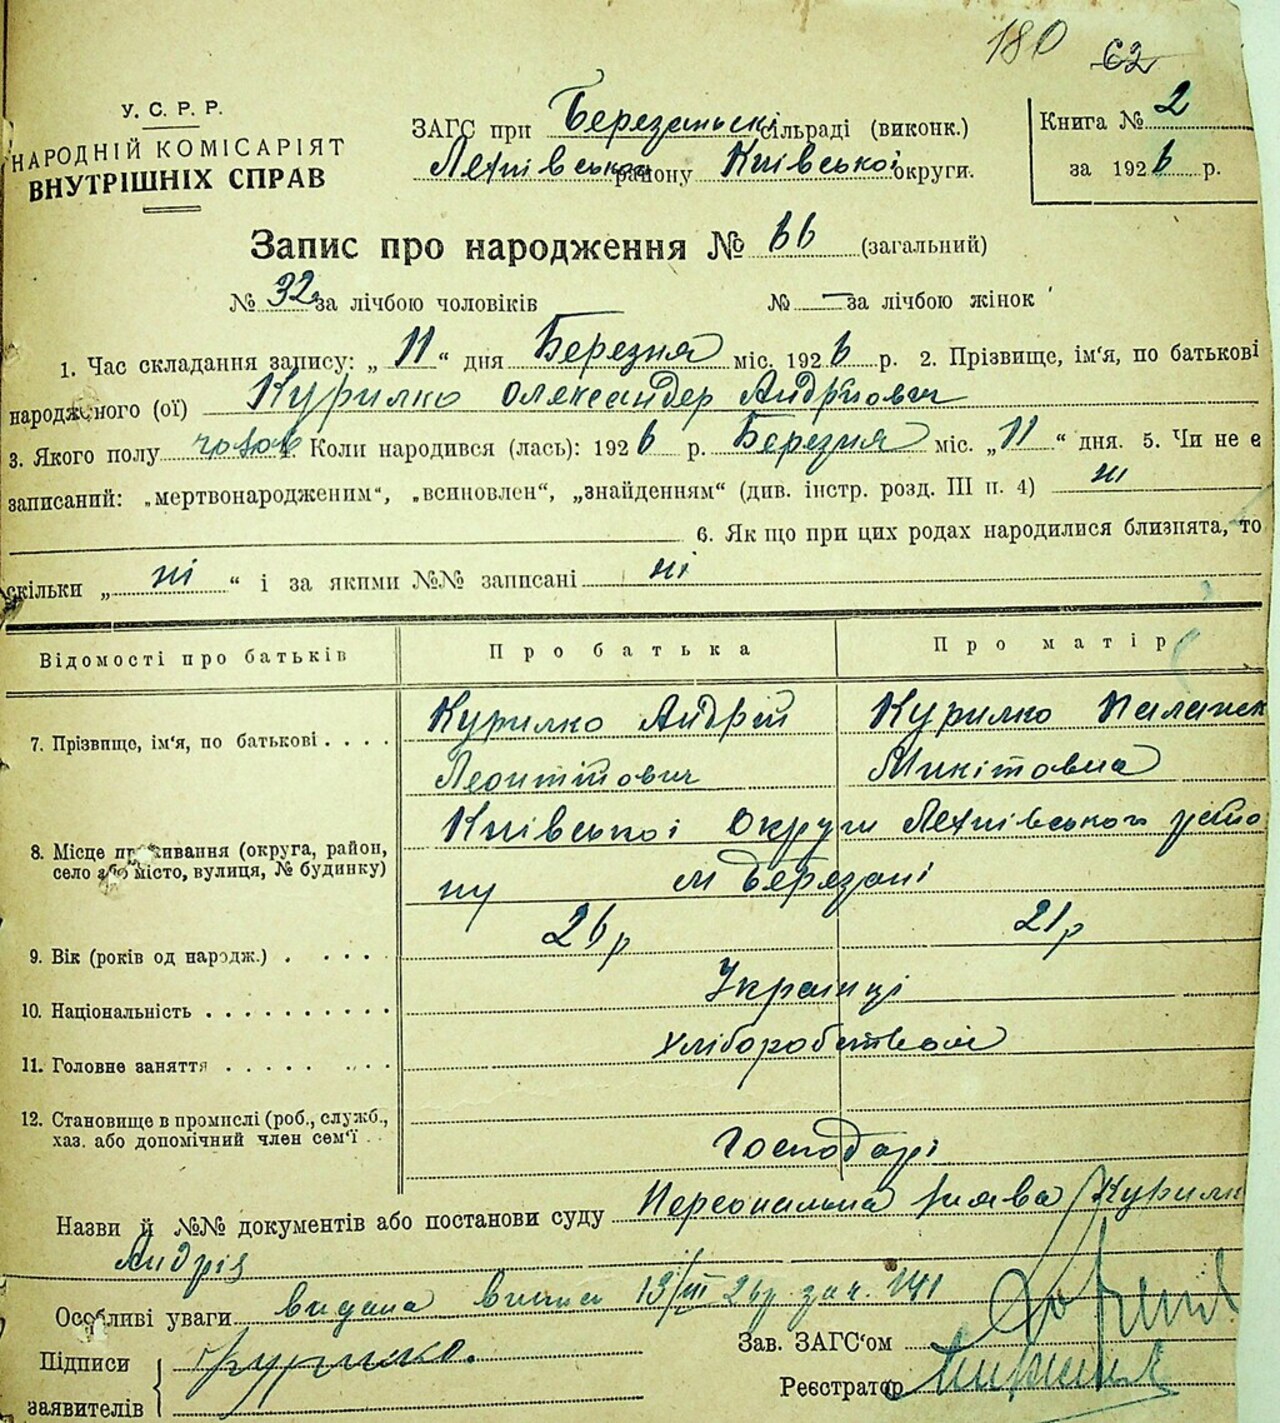 180 62
У. С. Р. Р.
НАРОДНІЙ КОМІСАРІЯТ
ВНУТРІШНІХ СПРАВ
ЗАГС при Березанські сільраді (виконк.)
району Київської округи.
Книга № 2
за 1926 р.
Запис про народження № 66 (загальний)
№ 32 за лічбою чоловіків № — за лічбою жінок
1. Час складання запису: „ 11 “ дня Березня міс. 1926 р. 2. Прізвище, ім‘я, по батькові
народженого (ої) Курилко Олександер Андрійович
3. Якого полу чолов 4. Коли народився (лась): 1926 р. Березня міс. „ 11 “ дня. 5. Чи не є
записаний: „мертвонародженим“, „всиновлен“, „знайденням“ (див. інстр. розд. III п. 4) ні
6. Як що при цих родах народилися близнята, то
скільки „ ні “ і за якими №№ записані ні
Відомості про батьків Про батька Про матір
7. Прізвище, ім‘я, по батькові . . . . Курилко Андрій Курилко Палажк
Леонтійович Микітовна
8. Місце проживання (округа, район, село або місто, вулиця, № будинку) Київської Округи району
м Березані
9. Вік (років од народж.) . . . . . 26 р 21 р
10. Національність . . . . . . . . . . Українці
11. Головне заняття . . . . . . . . Хліборобством
12. Становище в промислі (роб., служб., хаз. або допомічний член сем‘ї . . Господарі
Назви й №№ документів або постанови суду Персональна заява Курилк
Андрія
Особливі уваги видана 13/III 26р. 141
Зав. ЗАГС‘ом
Підписи заявителів Курилко.
Реєстратор